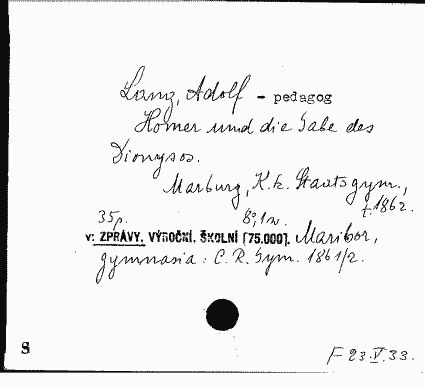 Lanz, Adolf - pedagog
Homer und die Gabe des
Dionysos.
Marburg, K.k. Staatsgym.,
t. 1862.
35p. 8°, 1 n.
v: ZPRÁVY, VÝROČNÍ, ŠKOLNÍ [75.000]. Maribor,
gymnasia: C. R. Gym. 1861/2.
S
F 23.V.33.